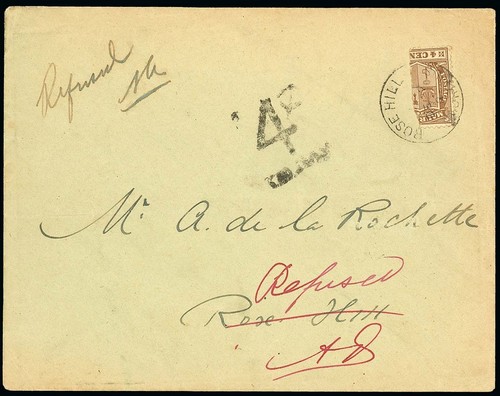 Refused
4c
4 CEN
ROSE HILL
Mr A. de la Rochette
Refused
Rose Hill